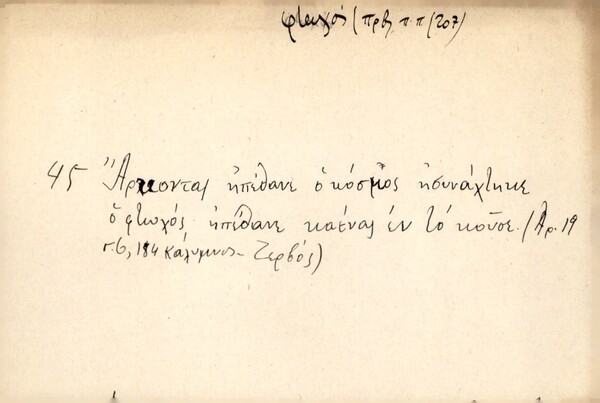 φτωχός (πρβ π.π (207)
45 Ἄρκοντας ἠπέθανε ὁ κόσμος ἠσυνάχτηκε
ὁ φτωχός ἠπέθανε κανένας ἐν τό κοῦσε. (Αρ. 19
σ. 6, 184 Κάλυμνος - Ζερβός)